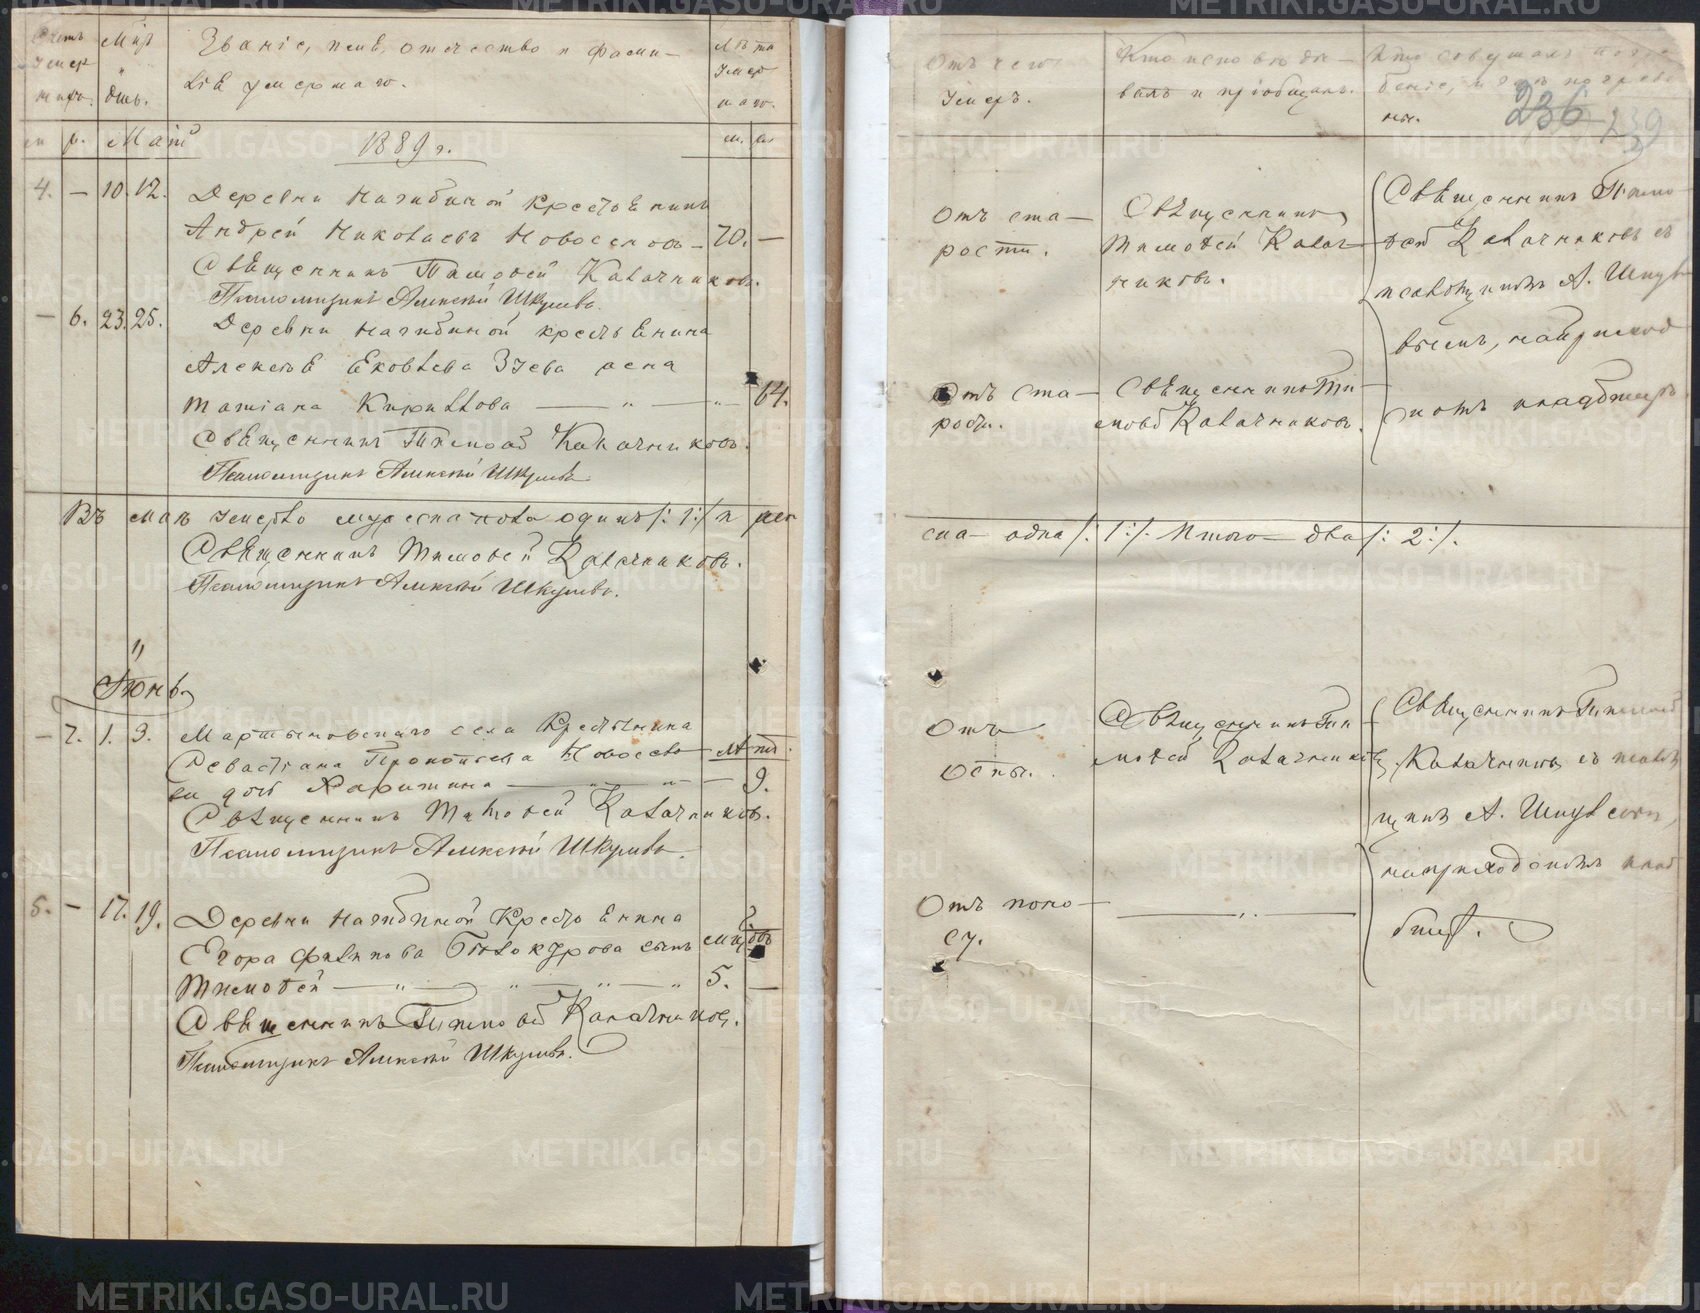 Счетъ умер шихъ.
Мцъ и день.
Званіе, имя, отчество и фами-
лія умершаго.
Лѣта умер шаго.
м. ж. Маій 1889 г. м. ж.
4. — 10. 12. Деревни Нагибиной крестьянинъ
Андрей Николаевъ Новоселовъ — 70. —
Священникъ Тимоѳей Калачниковъ.
Псаломщикъ Алексѣй Шкулевъ.
— 6. 23. 25. Деревни Нагибиной крестьянина
Алексѣя Яковлева Зуева жена
Татіана Кириллова — " — " — 64.
Священникъ Тимоѳей Калачниковъ.
Псаломщикъ Алексѣй Шкулевъ.
Въ маѣ умерло мужеска пола одинъ /: 1 :/ и жен
Священникъ Тимоѳей Калачниковъ.
Псаломщикъ Алексѣй Шкулевъ.
"
Іюнь
— 7. 1. 3. Мартыновскаго села Крестьянина
Севастіана Прокопьева Новосело
ва дочь Харитина — " — " — Лѣтъ 9.
Священникъ Тимоѳей Калачниковъ.
Псаломщикъ Алексѣй Шкулевъ.
5. — 17. 19. Деревни Нагибиной Крестьянина
Егора Филипова Бѣлокурова сынъ
Тимоѳей — " — " — " — " 5. —
Священникъ Тимоѳей Калачниковъ.
Псаломщикъ Алексѣй Шкулевъ.
Отъ чего умеръ.
Кто исповѣды-
валъ и пріобщалъ.
Кто совершалъ погре
беніе, и гдѣ погребе
ны.
236 239
Отъ ста-
рости.
Священникъ
Тимоѳей Калач-
никовъ.
Священникъ Тимо-
ѳей Калачниковъ съ
псаломщикомъ А. Шкул
евымъ, на приход
скомъ кладбищѣ.
Отъ ста-
рости.
Священникъ Ти-
моѳей Калачниковъ.
ска — одна /: 1 :/. Итого — два /: 2 :/.
Отъ
оспы.
Священникъ Ти-
моѳей Калачниковъ
Священникъ Тимоѳей
Калачниковъ съ псалом
щикъ А. Шкулевым,
на приходскомъ клад
бищѣ.
Отъ поно-
су.
— " —
METRIKI.GASO-URAL.RU